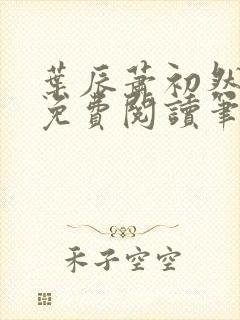 葉辰蕭初然
免費閱讀筆
禾子空空